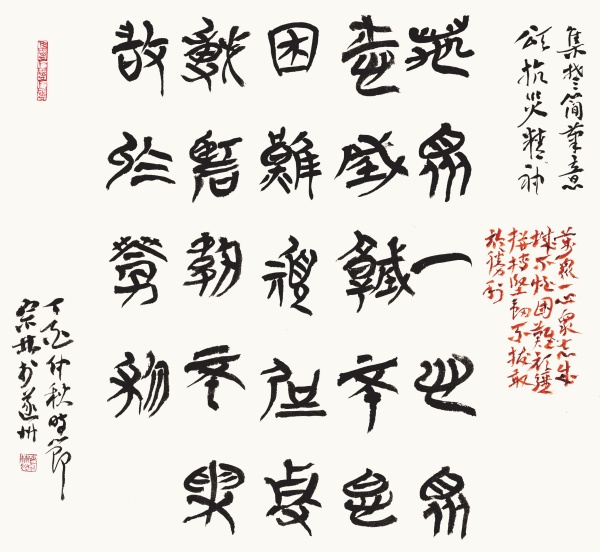 集楚簡筆意
頌抗災精神
萬眾一心眾志成
城不怕困難頑強
拼搏堅韌不拔敢
於勝利
萬眾一心眾
志成城不怕
困難頑強拼
搏堅韌不拔
敢於勝利
丁亥仲秋時節
宗林書遂州